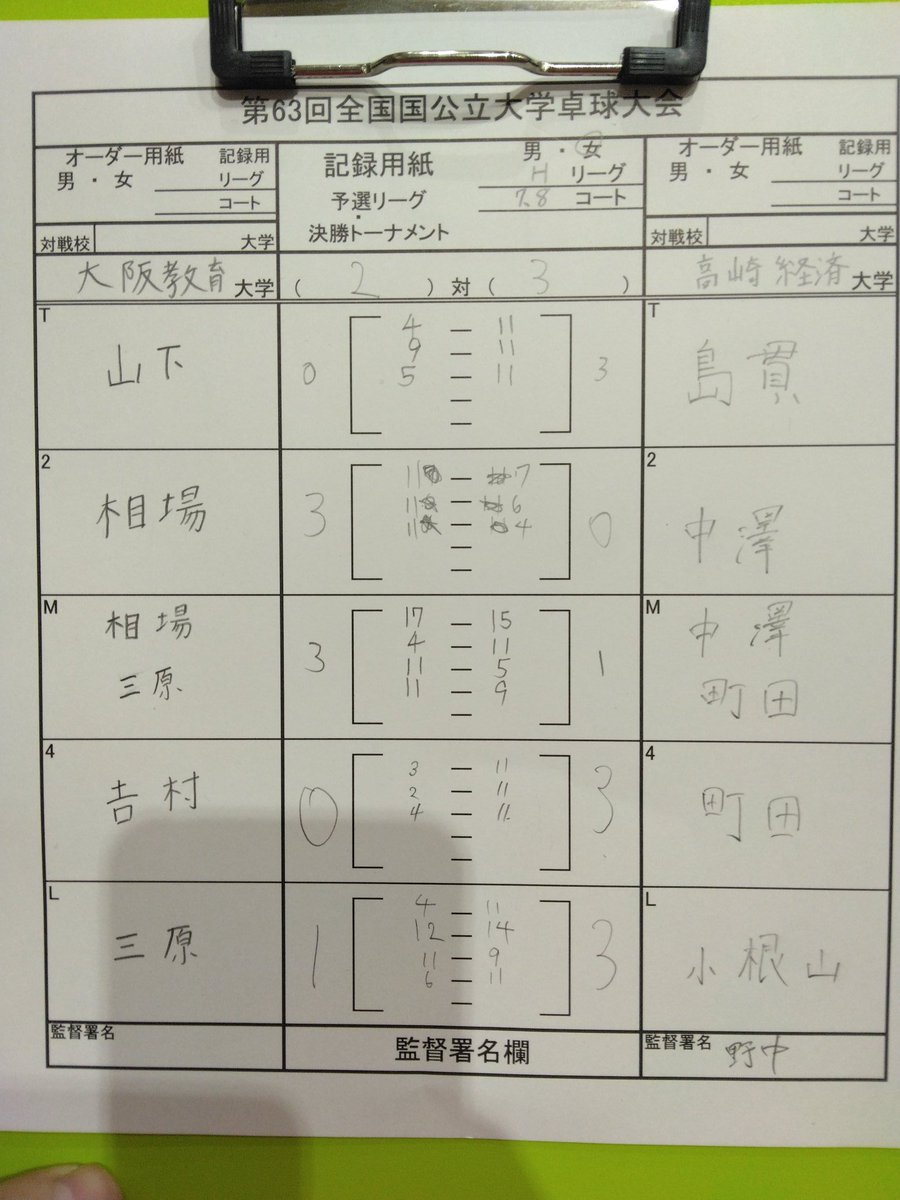 第63回全国国公立大学卓球大会
オーダー用紙 記録用
男・女 リーグ
コート
対戦校 大学
記録用紙 男・女
予選リーグ H リーグ
・ 7.8 コート
決勝トーナメント
オーダー用紙 記録用
男・女 リーグ
コート
対戦校 大学
大阪教育 大学 ( 2 ) 対 ( 3 ) 高崎経済 大学
T 山下 0 3 T 島貫
4 — 11
9 — 11
5 — 11
—
—
2 相場 3 0 2 中澤
11 — 7
11 — 6
11 — 4
—
—
M 相場 三原 3 1 M 中澤 町田
17 — 15
4 — 11
11 — 5
11 — 9
—
4 吉村 0 3 4 町田
3 — 11
2 — 11
4 — 11
—
—
L 三原 1 3 L 小根山
4 — 11
12 — 14
11 — 9
6 — 11
—
監督署名 監督署名欄 監督署名 野中